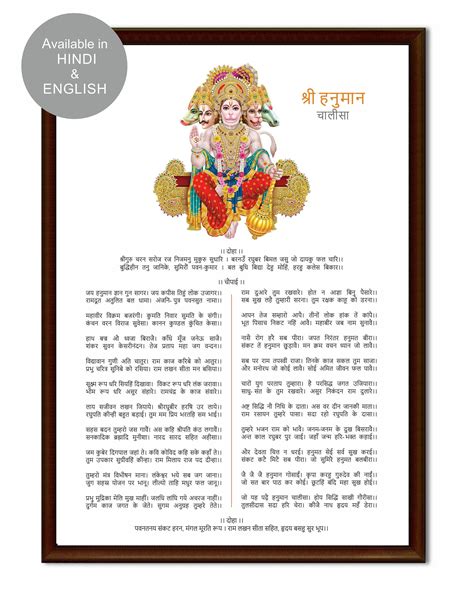 Available in
HINDI
&
ENGLISH
श्री हनुमान
चालीसा
।। दोहा ।।
श्रीगुरु चरन सरोज रज निजमनु मुकुरु सुधारि । बरनउँ रघुबर बिमल जसु जो दायकु फल चारि।।
बुद्धिहीन तनु जानिके, सुमिरौं पवन-कुमार । बल बुधि बिद्या देहु मोहिं, हरहु कलेस बिकार।।
।। चौपाई ।।
जय हनुमान ज्ञान गुन सागर। जय कपीस तिहुं लोक उजागर।।
रामदूत अतुलित बल धामा। अंजनि-पुत्र पवनसुत नामा।।
महाबीर विक्रम बजरंगी। कुमति निवार सुमति के संगी।।
कंचन वरन विराज सुवेसा। कानन कुण्डल कुंचित केसा।।
हाथ बज्र औ ध्वजा बिराजै। काँधे मूँज जनेऊ साजै।
शंकर सुवन केसरीनंदन। तेज प्रताप महा जग वन्दन।।
विद्यावान गुणी अति चातुर। राम काज करिबे को आतुर।।
प्रभु चरित्र सुनिबे को रसिया। राम लखन सीता मन बसिया।।
सूक्ष्म रूप धरि सियहिं दिखावा। विकट रूप धरि लंक जरावा।
भीम रूप धरि असुर संहारे। रामचंद्र के काज संवारे।।
लाय सजीवन लखन जियाये। श्रीरघुबीर हरषि उर लाये।।
रघुपति कीन्हीं बहुत बड़ाई। तुम मम प्रिय भरतहि सम भाई।।
सहस बदन तुम्हरो जस गावैं। अस कहि श्रीपति कंठ लगावैं।।
सनकादिक ब्रह्मादि मुनीसा। नारद सारद सहित अहीसा।।
जम कुबेर दिगपाल जहां ते। कवि कोविद कहि सके कहां ते।।
तुम उपकार सुग्रीवहिं कीन्हा। राम मिलाय राज पद दीन्हा।।
तुम्हरो मंत्र विभीषन माना। लंकेश्वर भये सब जग जाना।।
जुग सहस्र योजन पर भानू। लील्यो ताहि मधुर फल जानू।।
प्रभु मुद्रिका मेलि मुख माहीं। जलधि लांघि गये अचरज नाहीं।
दुर्गम काज जगत के जेते। सुगम अनुग्रह तुम्हरे तेते।।
राम दुआरे तुम रखवारे। होत न आज्ञा बिनु पैसारे।।
सब सुख लहै तुम्हारी सरना। तुम रक्षक काहू को डरना।।
आपन तेज सम्हारो आपै। तीनों लोक हांक तें कांपै।।
भूत पिसाच निकट नहिं आवै। महाबीर जब नाम सुनावै।।
नासै रोग हरै सब पीरा। जपत निरंतर हनुमत बीरा।।
संकट तें हनुमान छुड़ावै। मन क्रम वचन ध्यान जो लावै।।
सब पर राम तपस्वी राजा। तिनके काज सकल तुम साजा।
और मनोरथ जो कोई लावै। सोई अमित जीवन फल पावै।।
चारों युग परताप तुम्हारा। है परसिद्ध जगत उजियारा।।
साधु-संत के तुम रखवारे। असुर निकंदन राम दुलारे।।
अष्ट सिद्धि नौ निधि के दाता। अस वर दीन जानकी माता।।
राम रसायन तुम्हरे पासा। सदा रहो रघुपति के दासा।।
तुम्हरे भजन राम को भावै। जनम-जनम के दुख बिसरावै।।
अन्त काल रघुबर पुर जाई। जहां जन्म हरि-भक्त कहाई।।
और देवता चित्त न धरई। हनुमत सेई सर्व सुख करई।।
संकट कटै मिटै सब पीरा। जो सुमिरै हनुमत बलबीरा।।
जै जै जै हनुमान गोसाईं। कृपा करहु गुरुदेव की नाईं।।
जो सत बार पाठ कर कोई। छूटहिं बंदि महा सुख होई।।
जो यह पढ़ै हनुमान चालीसा। होय सिद्धि साखी गौरीसा।।
तुलसीदास सदा हरि चेरा। कीजै नाथ हृदय महँ डेरा।।
।। दोहा ।।
पवनतनय संकट हरन, मंगल मूरति रूप । राम लखन सीता सहित, हृदय बसहु सुर भूप।।